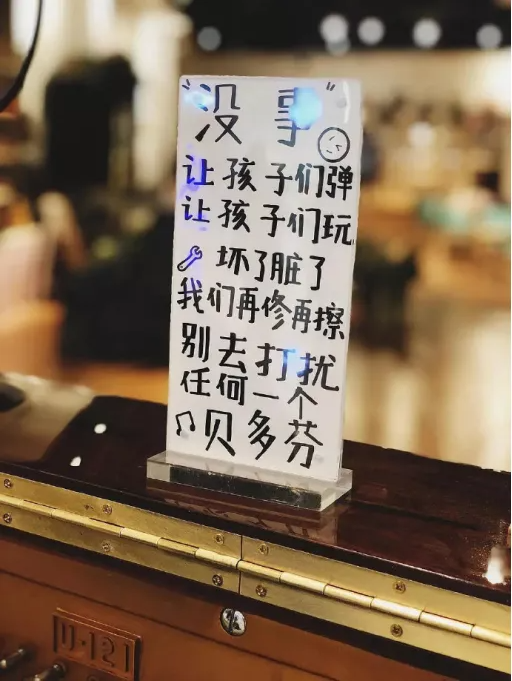 "没事"
让孩子们弹
让孩子们玩
坏了脏了
我们再修再擦
别去打扰
任何一个
贝多芬
U-121